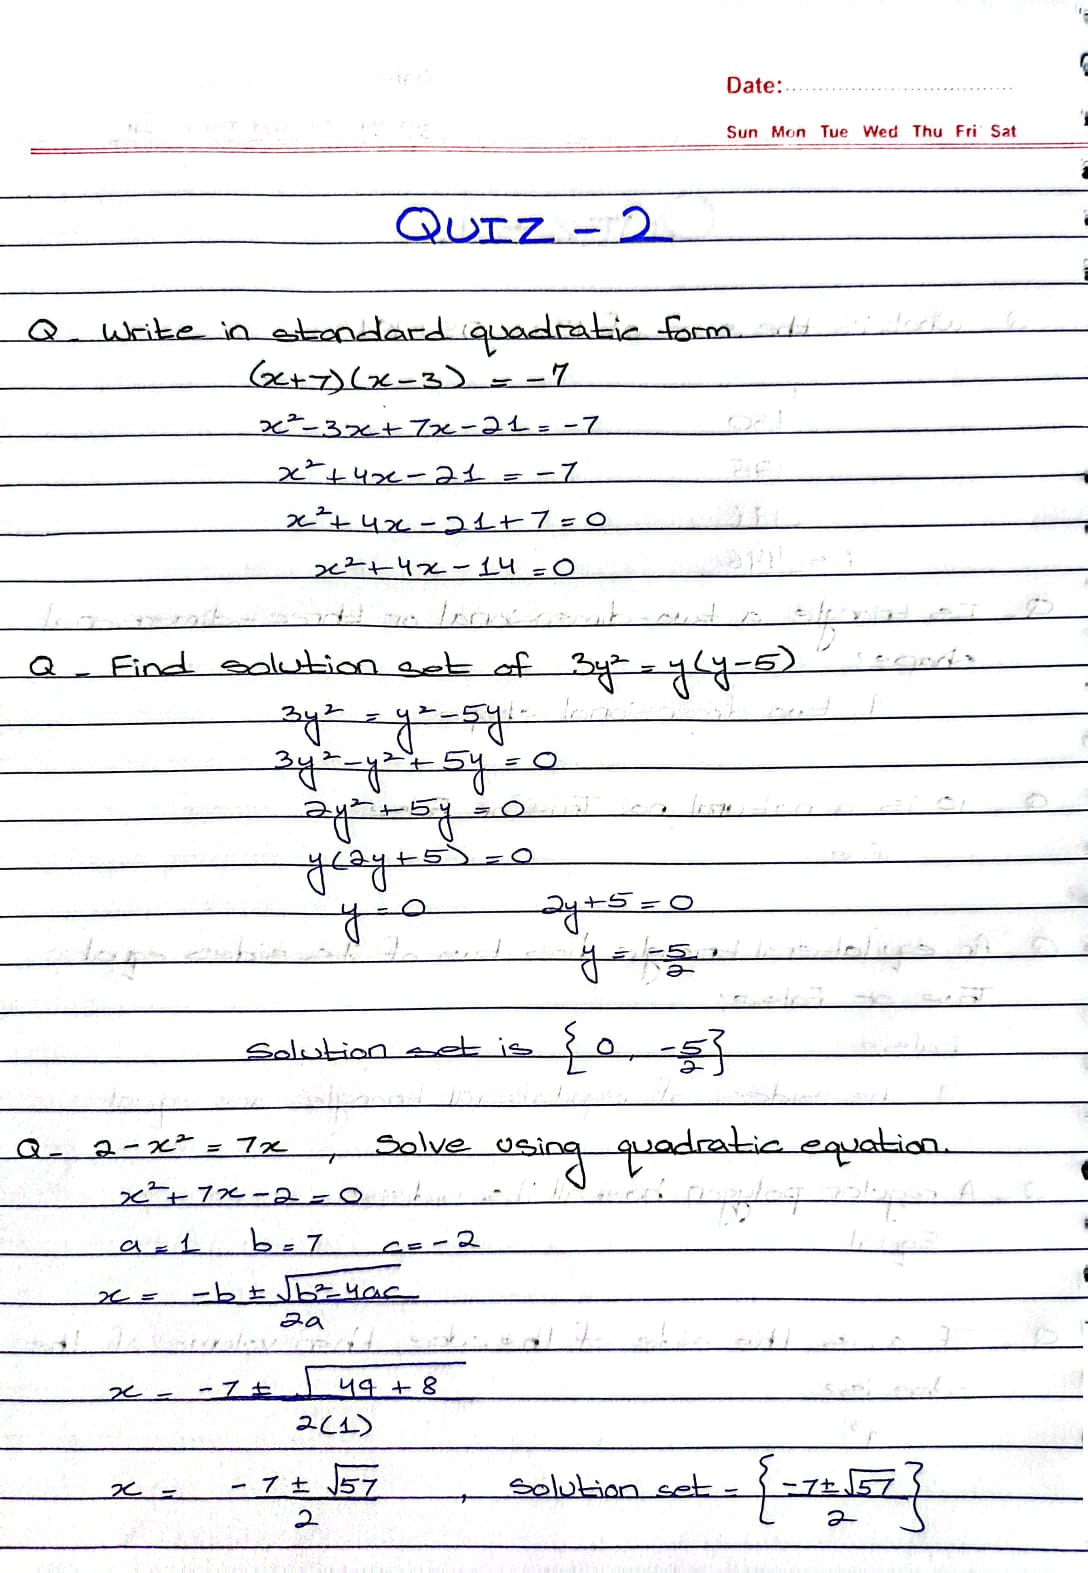 Date:
Sun Mon Tue Wed Thu Fri Sat
QUIZ - 2
Q - Write in standard quadratic form.
(x+7)(x-3) = -7
x²-3x+7x-21 = -7
x²+4x-21 = -7
x²+4x-21+7=0
x²+4x-14=0
Q - Find solution set of 3y² = y(y-5)
3y² = y²-5y
3y²-y²+5y = 0
2y²+5y = 0
y(2y+5) = 0
y = 0 2y+5 = 0
y = -5/2
Solution set is {0, -5/2}
Q - 2-x² = 7x , Solve using quadratic equation.
x²+7x-2=0
a=1 b=7 c=-2
x = -b ± √b²-4ac / 2a
x = -7 ± √49+8 / 2(1)
x = -7 ± √57 / 2 , Solution set = {-7±√57 / 2}